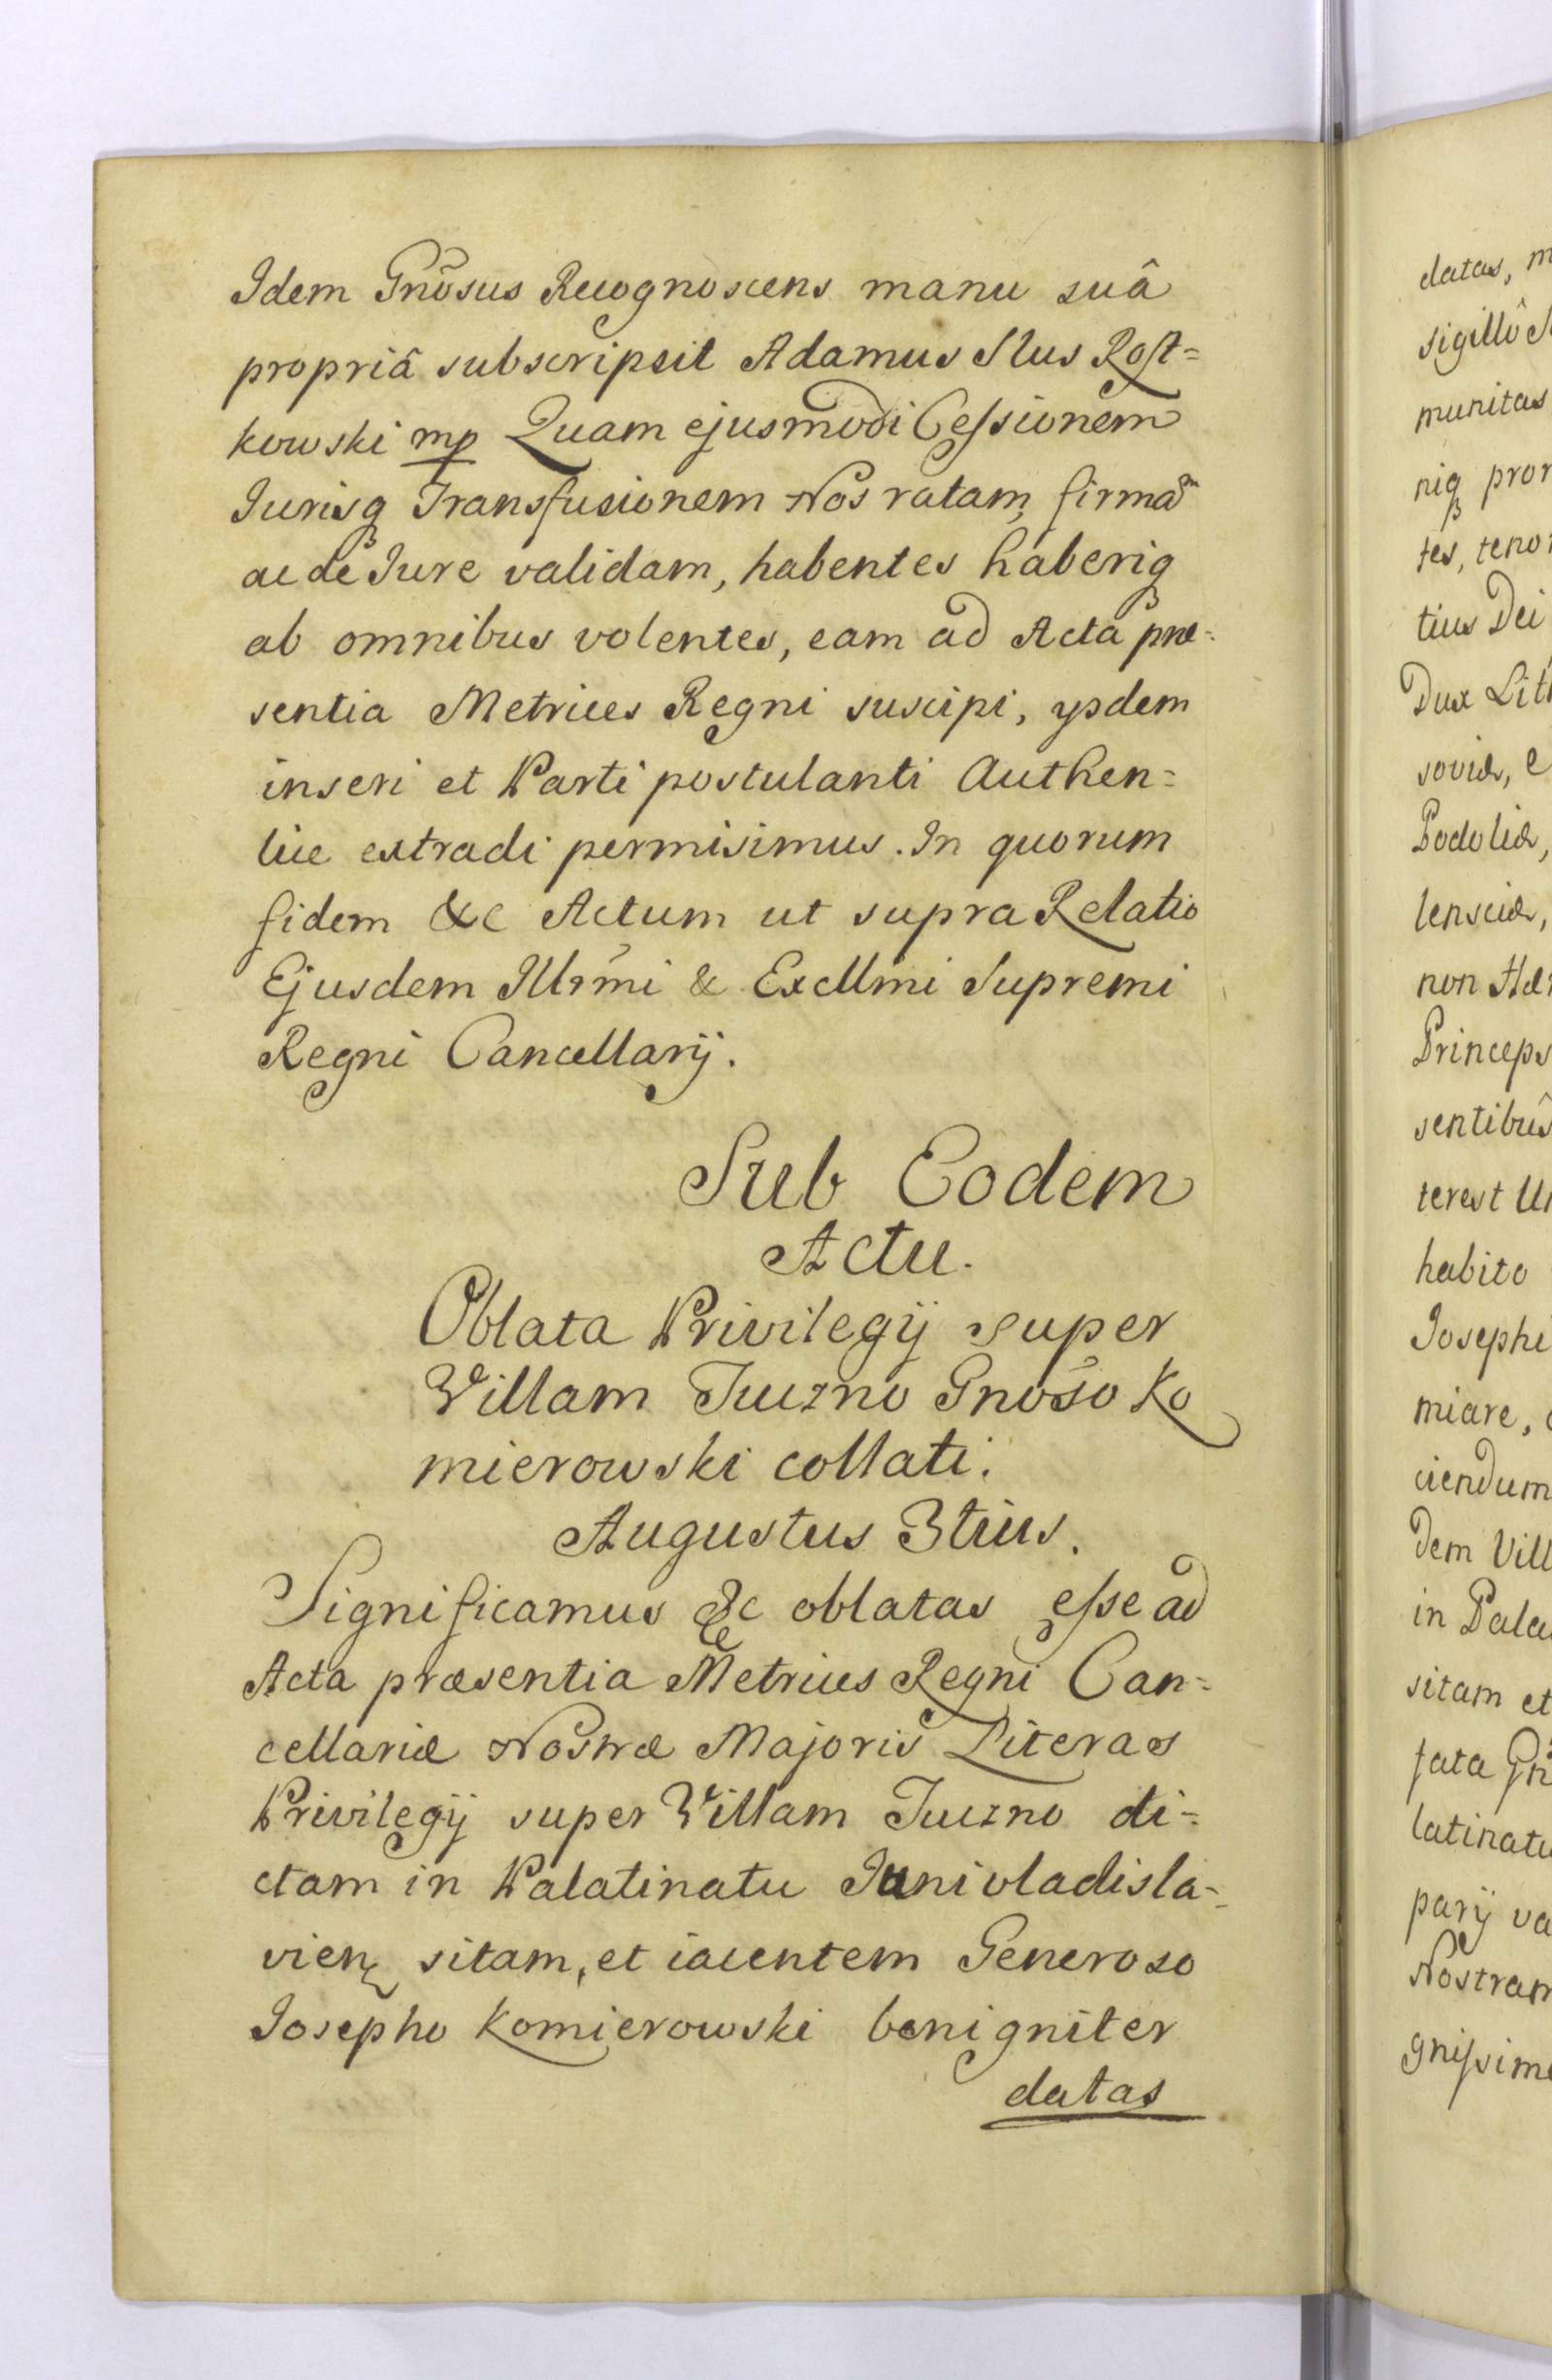 Idem Gnõsus Recognoscens manu suâ
propriâ subscripsit Adamus Stus Rost=
kowski mp Quam ejusmodi Cessionem
Jurisq Transfusionem Nos ratam, firmã
ac de Jure validam, habentes haberiq
ab omnibus volentes, eam ad Acta præ=
sentia Metrices Regni suscipi, ysdem
inseri et Parti postulanti Authen=
tice extradi permisimus. In quorum
fidem &c Actum ut supra Relatio
Ejusdem Illr̃mi & Excllmi Supremi
Regni Cancellarij.
Sub Eodem
Actu.
Oblata Privilegij super
Villam Tuczno Gnõso Ko
mierowski collati.
Augustus 3tius.
Significamus &c oblatas esse ad
Acta præsentia Metrices Regni Can=
cellariæ Nostræ Majoris Literas
Privilegij super Villam Tuczno di=
ctam in Palatinatu Junivladisla=
vien sitam, et iacentem Generoso
Josepho Komierowski benigniter
datas
datas, m
sigillô S
munitas
niq pror
tes, tenor
tius Dei
Dux Lith
soviæ, e
Podoliæ,
lensciæ,
non Hær
Princeps
sentibûs
terest Un
habito
Josephi
miare,
ciendum
dem Vill
in Pala
sitam et
fata Gñ
latinatu
parij va
Nostram
gnissime